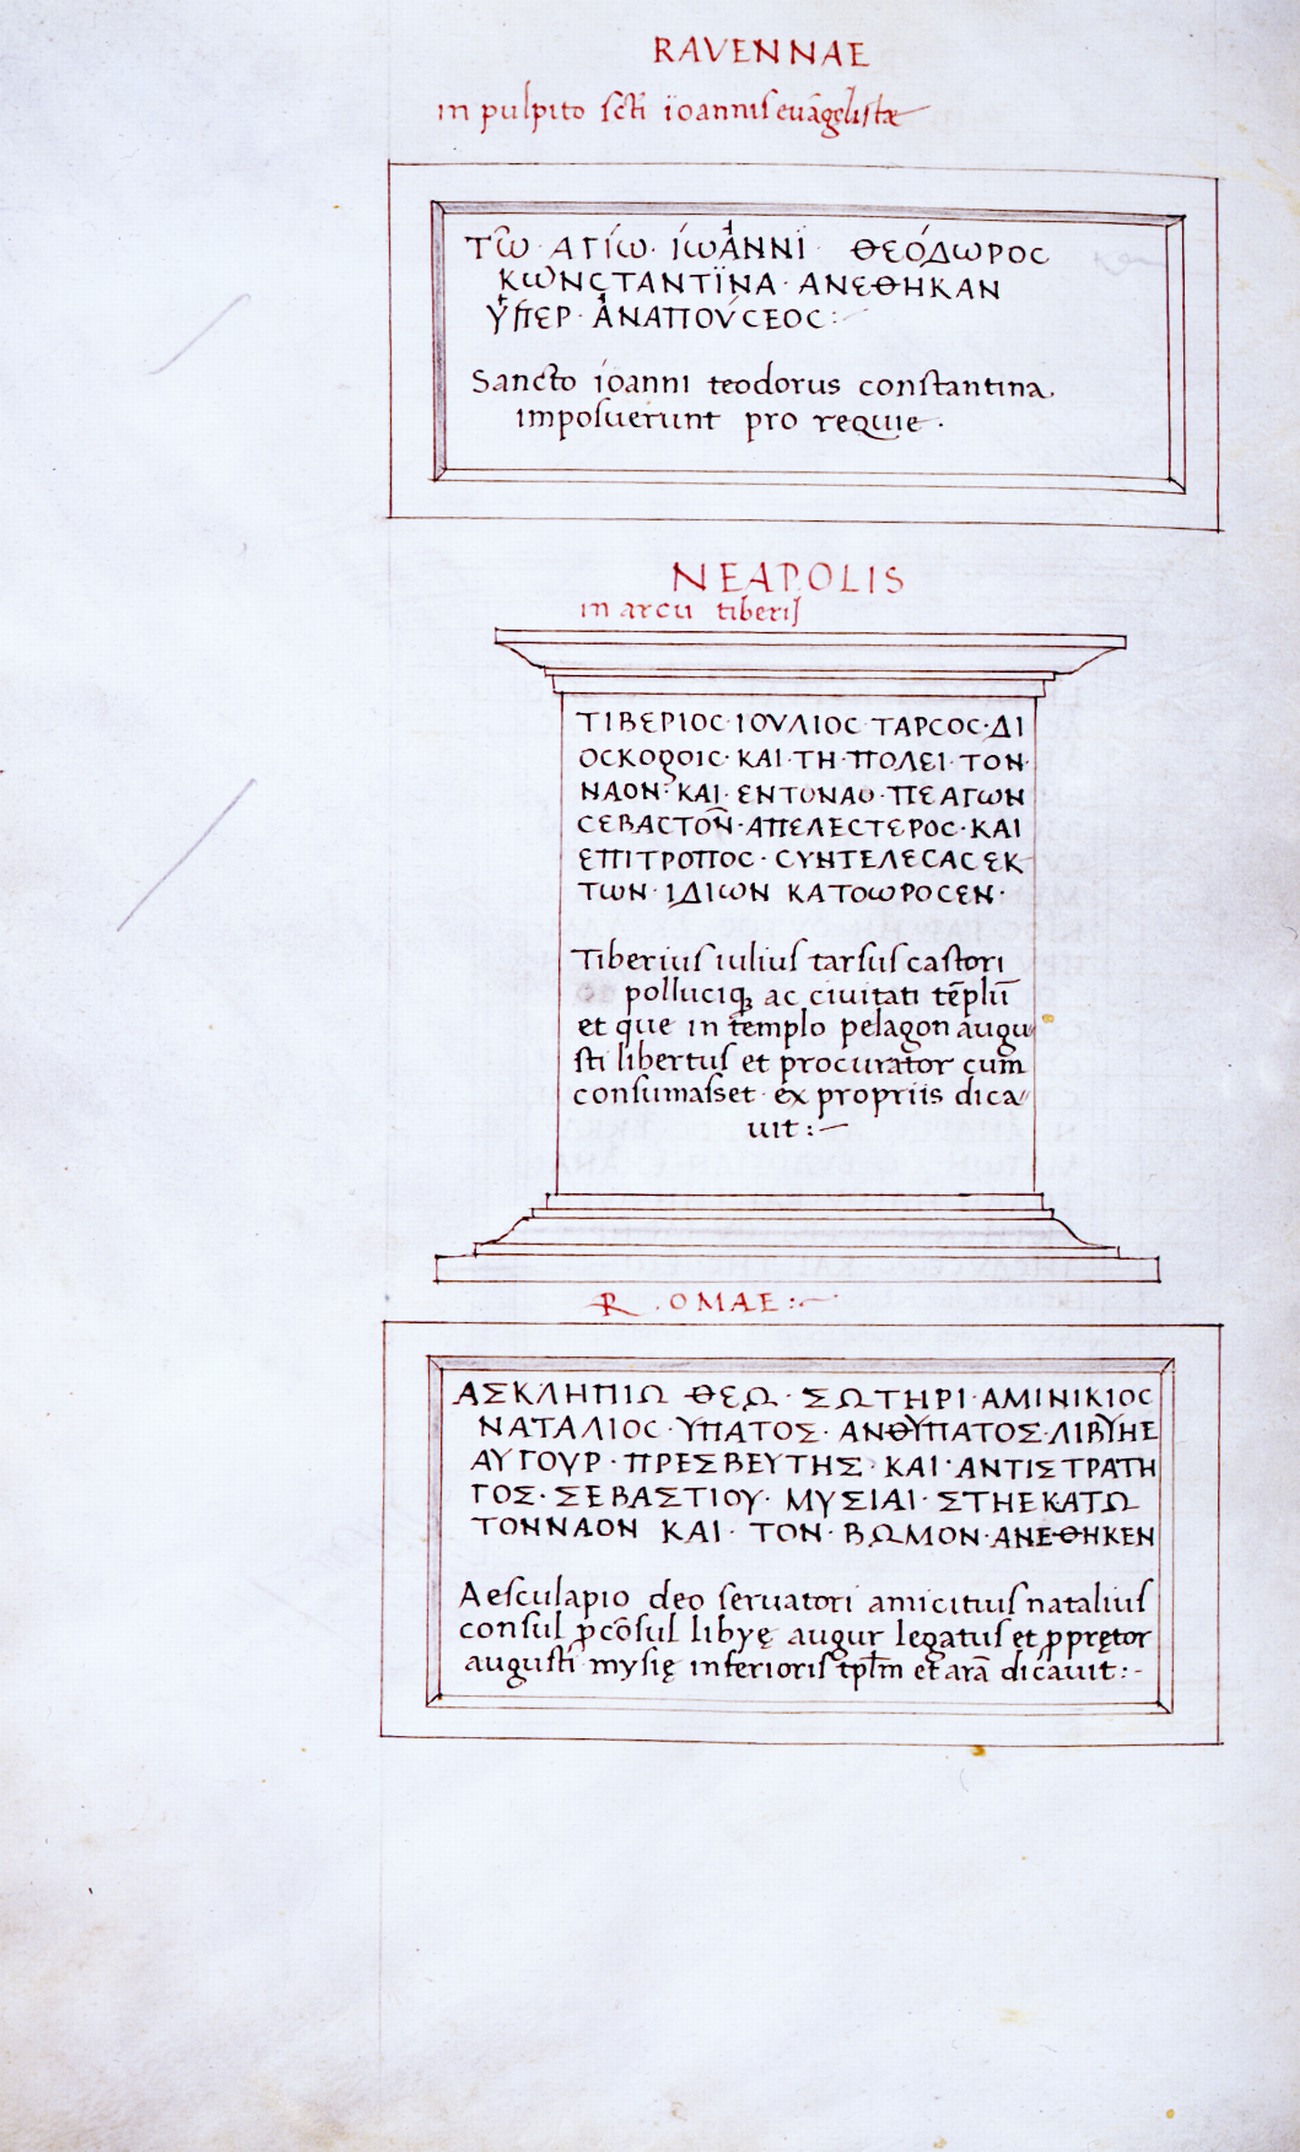 RAVENNAE
in pulpito scti ïoannis euãgelistæ
ΤῶΩ · ΑΓΊω · ΙώΑΝΝΪ · ΘΕΌΔωΡΟϹ
ΚωΝϹΤΑΝΤΪΝΑ · ΑΝΕΘΗΚΑΝ
ΥΠΕΡ · ΑΝΑΠΟΎϹΕΟϹ :
Sancto ioanni teodorus constantina
imposuerunt pro requie ·
NEAPOLIS
in arcu tiberis
ΤΙΒΕΡΙΟϹ · ΙΟΥΛΙΟϹ · ΤΑΡϹΟϹ · ΔΙ
ΟϹΚΟΡΟΙϹ · ΚΑΙ · ΤΗ · ΠΟΛΕΙ · ΤΟΝ ·
ΝΑΟΝ : ΚΑΙ · ΕΝΤΟΝΑΟ · ΠΕΑΓωΝ
ϹΕΒΑϹΤΟΝ̃ · ΑΠΕΛΕϹΤΕΡΟϹ · ΚΑΙ
ΕΠΙΤΡΟΠΟϹ · ϹΥΝΤΕΛΕϹΑϹ ΕΚ
ΤωΝ · ΙΔΙωΝ ΚΑΤΟωΡΟϹΕΝ ·
Tiberius iulius tarsus castori
polluciq; ac ciuitati tẽplũ
et que in templo pelagon augu
sti libertus et procurator cum
consumasset · ex propriis dica
uit :
ROMAE :
ΑΣΚΛΗΠΙΩ ΘΕΩ · ΣΩΤΗΡΙ · ΑΜΙΝΙΚΙΟϹ
ΝΑΤΑΛΙΟϹ · ΥΠΑΤΟΣ · ΑΝΘΥΠΑΤΟΣ · ΛΙΒΥΗΕ
ΑΥΓΟΥΡ · ΠΡΕΣΒΕΥΤΗΣ · ΚΑΙ · ΑΝΤΙΣΤΡΑΤΗ
ΓΟΣ · ΣΕΒΑΣΤΙΟΥ · ΜΥΣΙΑΙ · ΣΤΗΕΚΑΤΩ
ΤΟΝΝΑΟΝ ΚΑΙ · ΤΟΝ · ΒΩΜΟΝ · ΑΝΕΘΗΚΕΝ
Aesculapio deo seruatori amicitius natalius
consul ꝓcõsul libyę augur legatus et ꝓprętor
augusti mysię inferioris tplm̃ et arã dicauit :-